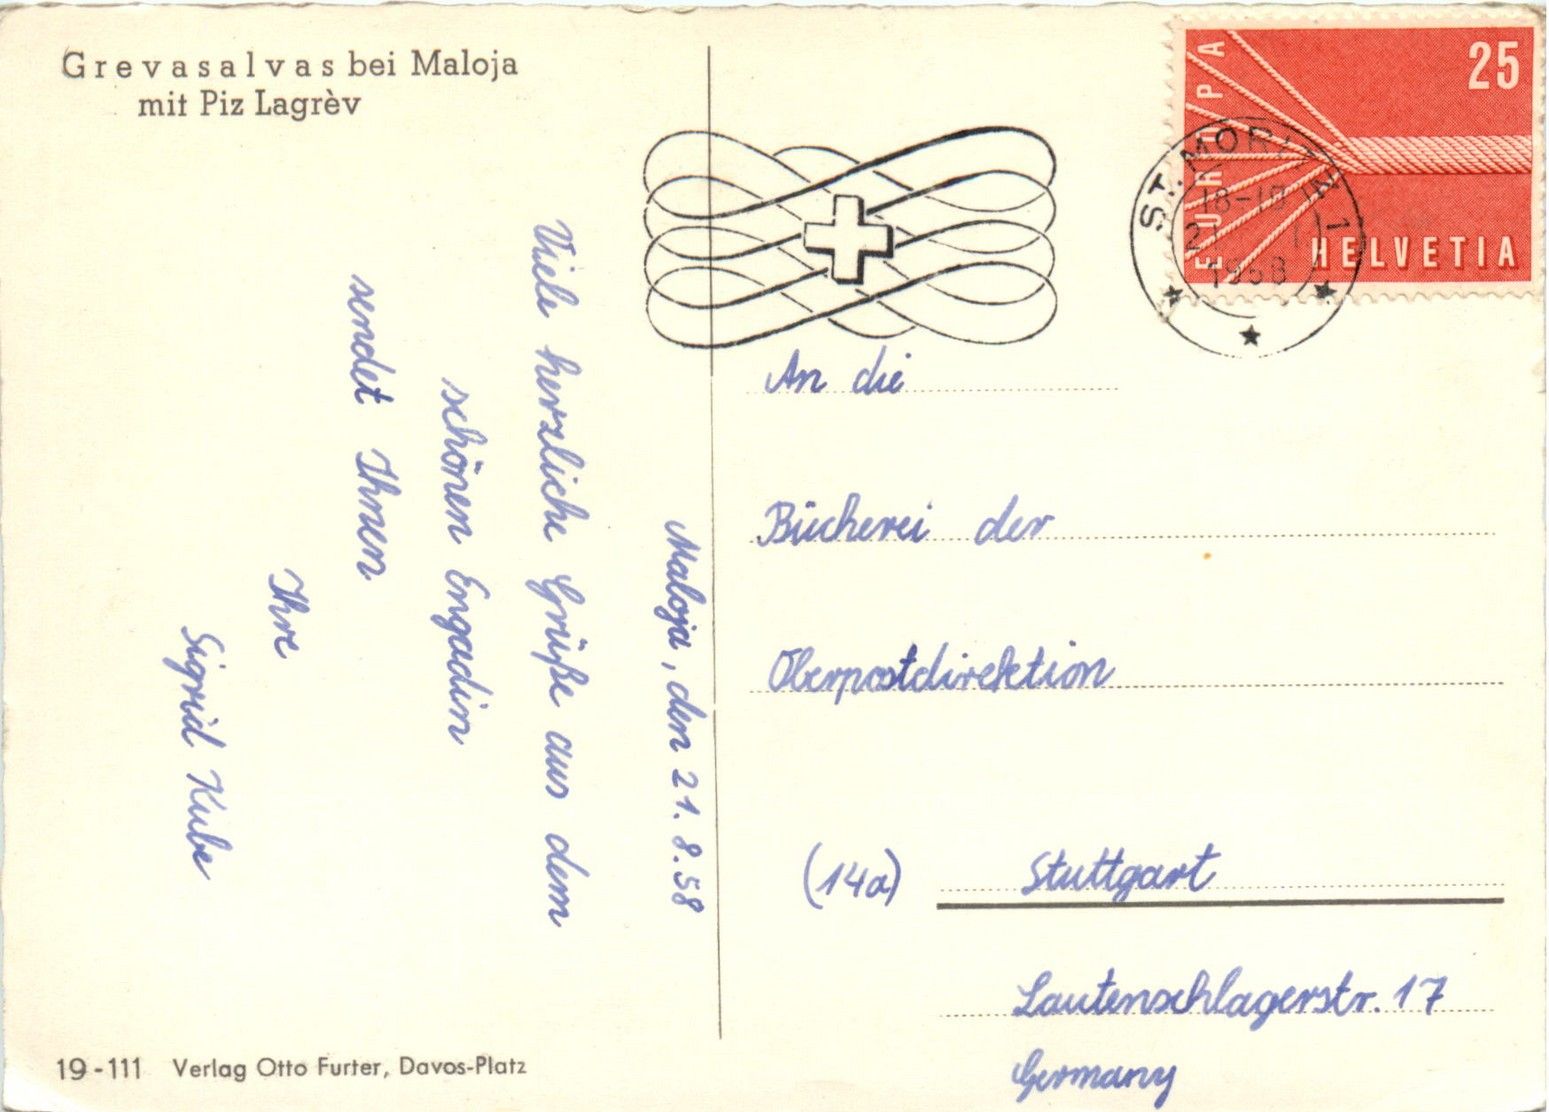 Grevasalvas bei Maloja
mit Piz Lagrèv
Maloja, den 21.8.58
Viele herzliche Grüße aus dem
schönen Engadin
sendet Ihnen
Ihre
Sigrid Kube
19-111 Verlag Otto Furter, Davos-Platz
EUROPA
25
HELVETIA
ST. MORITZ 1
18-19
21
1958
An die
Bücherei der
Oberpostdirektion
(14a) Stuttgart
Lautenschlagerstr. 17
Germany